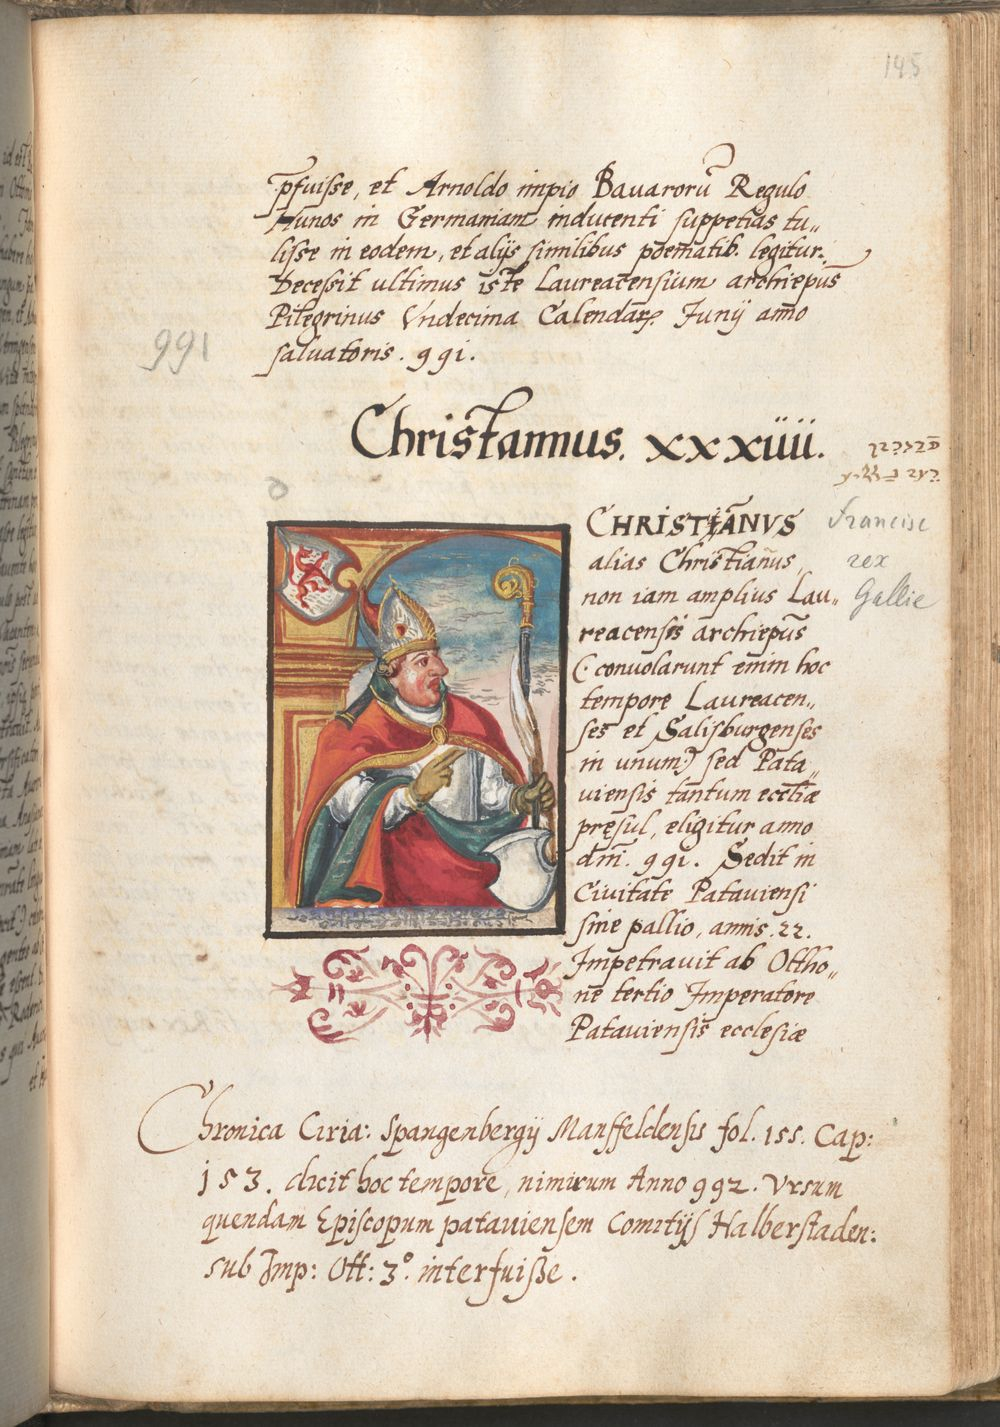 145
p̄fuisse, et Arnoldo impio Bavarorū Regulo
Hunos in Germaniam inducenti suppetias tu„
lisse in eodem, et alijs similibus poematib. legitur.
Decessit ultimus iste Laureacensium archiepūs
Pilegrinus Vndecima Calendaꝝ Junij anno
saluatoris. 991.
991
Christannus. xxxiiii.
CHRISTĀNVS
alias Christianus,
non iam amplius Lau„
reacensis archiepūs
(: convolarunt enim hoc
tempore Laureacen„
ses et Salisburgenses
in unum:) sed Pata„
uiensis tantum eccłiæ
pręsul, eligitur anno
dm̄i. 991. Sedit in
Ciuitate Patauiensi
sine pallio, annis. 22.
Impetrauit ab Ottho„
ne tertio Imperatore
Patauiensis ecclesiæ
francisc
rex
Gallie
Chronica Ciria: Spangenbergij Manssfeldensis fol. 155. Cap:
153. dicit hoc tempore, nimirum Anno 992. Vrsum
quendam Episcopum patauiensem Comitijs Halberstaden:
sub Imp: Ott: 3º. interfuisse.